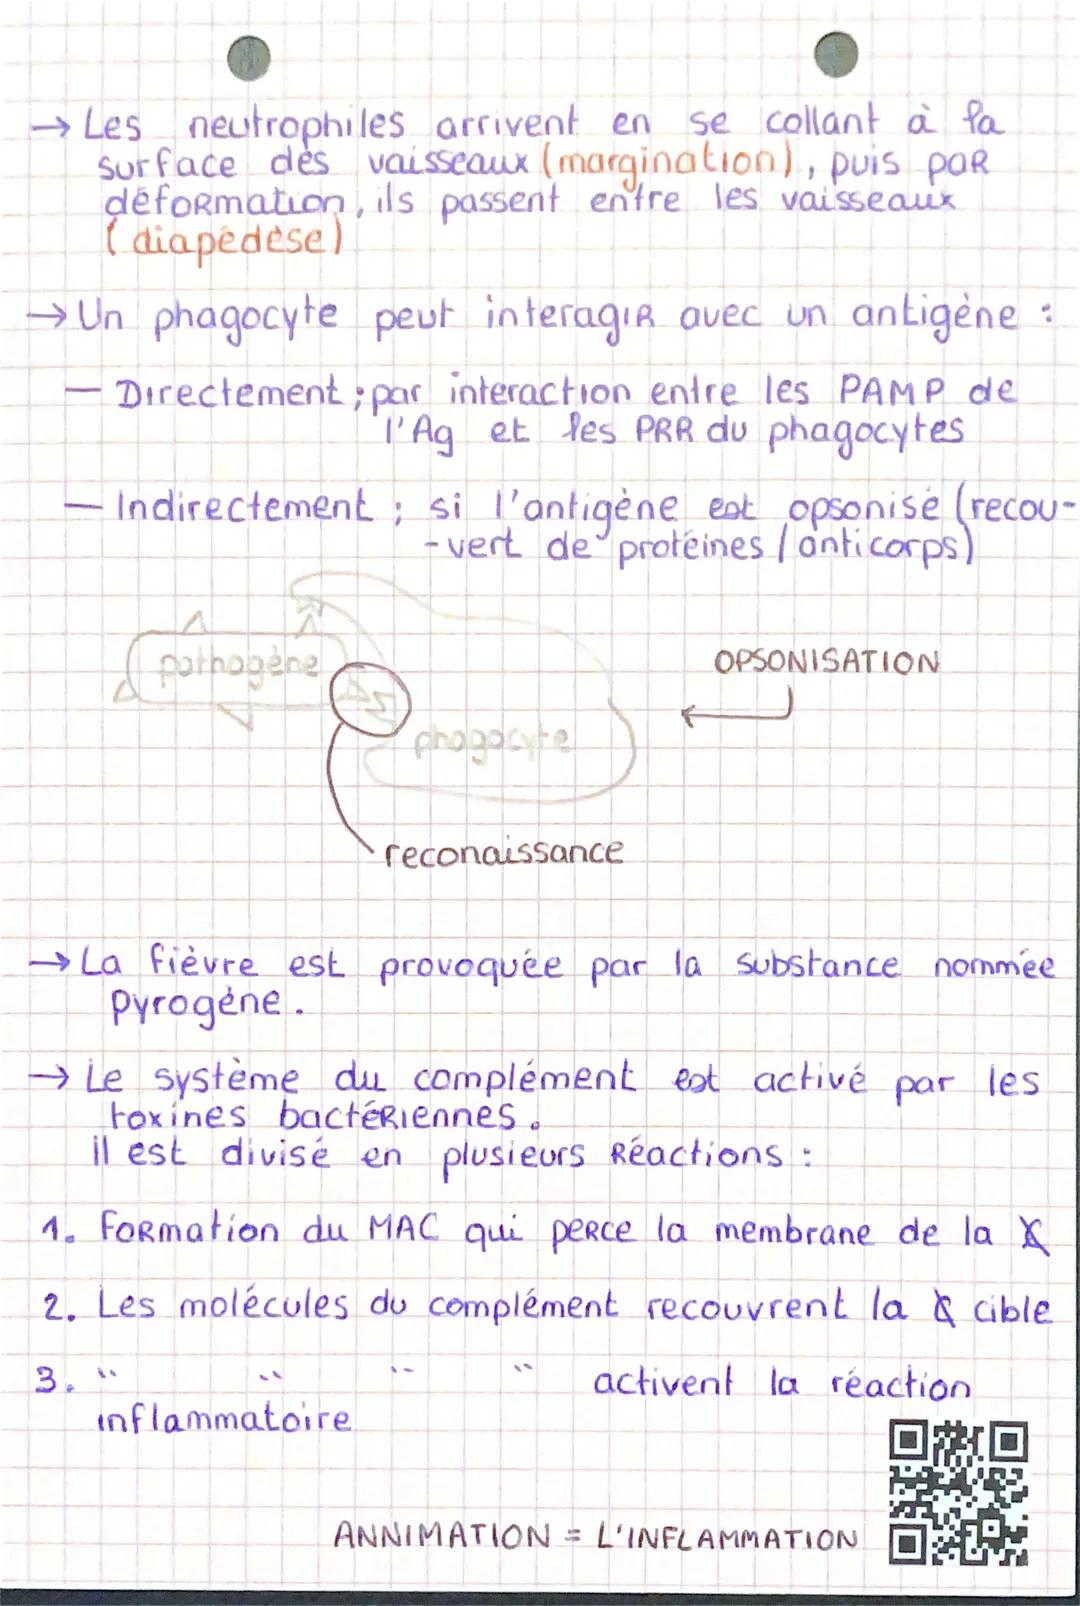 → Les neutrophiles arrivent en se collant à la
surface des vaisseaux (margination), puis par
déformation, ils passent entre les vaisseaux
(diapédèse)
→ Un phagocyte peut interagir avec un antigène :
— Directement ; par interaction entre les PAMP de
l'Ag et les PRR du phagocytes
— Indirectement ; si l'antigène est opsonisé (recou-
-vert de protéines / anticorps)
pathogène
OPSONISATION
phagocyte
reconaissance
→ La fièvre est provoquée par la substance nommée
pyrogène.
→ Le système du complément est activé par les
toxines bactériennes.
il est divisé en plusieurs Réactions :
1. Formation du MAC qui perce la membrane de la
2. Les molécules du complément recouvrent la cible
3. " " " " activent la réaction
inflammatoire
ANNIMATION = L'INFLAMMATION